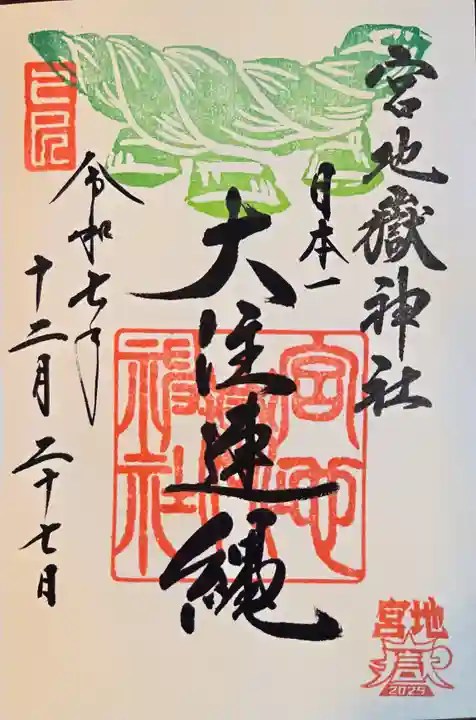 宮地嶽神社
日本一
大注連縄
令和七年
十二月二十七日
宮地
嶽
神社
宮地
嶽
2025